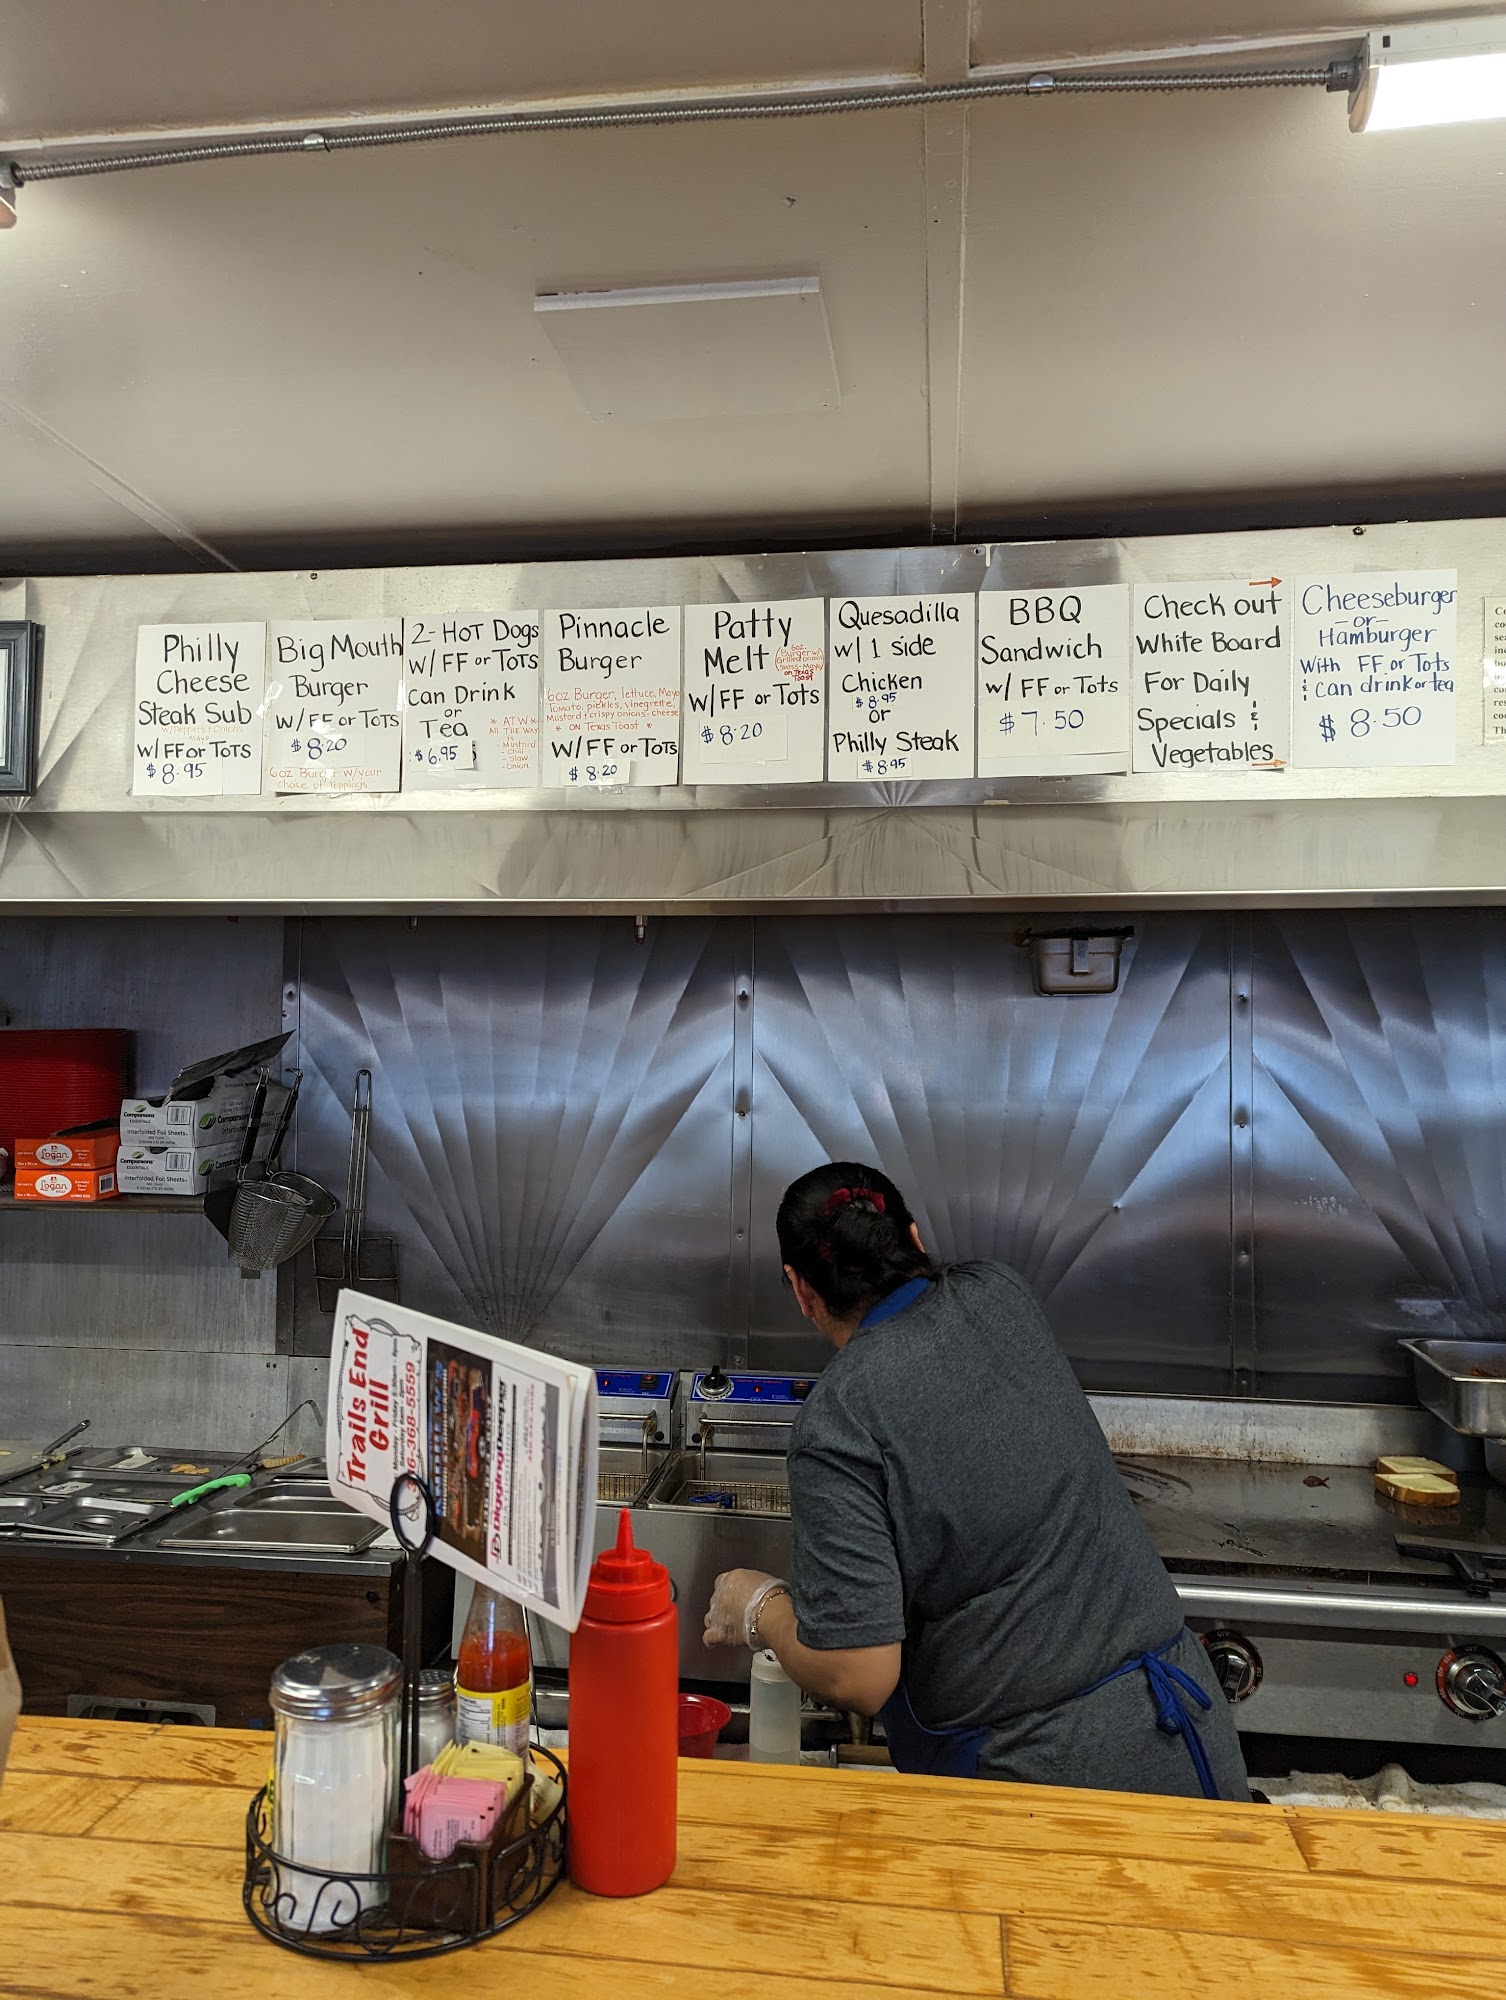 Philly
Cheese
Steak Sub
w/Peppers & Onions
Mayo
w/FF or Tots
$8.95
Big Mouth
Burger
w/FF or Tots
$8.20
6oz Burger w/your
choice of toppings
2-Hot Dogs
w/FF or Tots
Can Drink
or
Tea
$6.95
* ATW *
All The Way
is
- Mustard
- Chili
- Slaw
- Onion
Pinnacle
Burger
6oz Burger, lettuce, Mayo
Tomato, pickles, vinegrette,
Mustard & crispy onions - cheese
* ON Texas Toast *
w/FF or Tots
$8.20
Patty
Melt
6oz.
Burger w/
Grilled onions
Swiss-Mayo
on Texas
Toast
w/FF or Tots
$8.20
Quesadilla
w/1 side
Chicken
$8.95
or
Philly Steak
$8.95
BBQ
Sandwich
w/FF or Tots
$7.50
Check out
White Board
For Daily
Specials &
Vegetables
Cheeseburger
-or-
Hamburger
With FF or Tots
& Can drink or tea
$8.50
Companions
ESSENTIALS
Interfolded Foil Sheets
Companions
ESSENTIALS
Interfolded Foil Sheets
Logan
Logan
Trails End
Grill
Monday - Friday 5:30am - 8pm
36-368-5559
DiggingDeeper
OFF